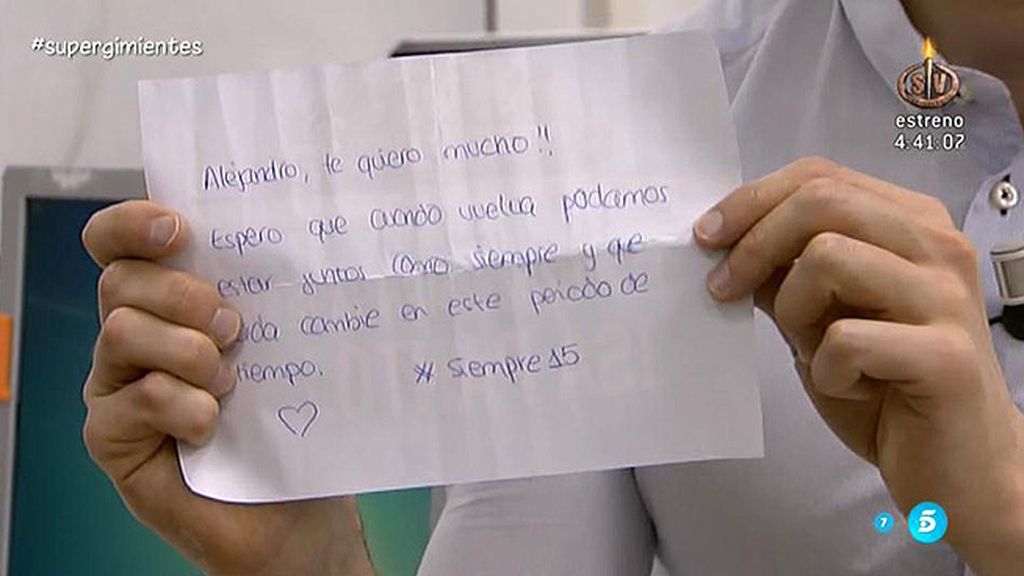 #supergimientes
SV
estreno
4:41:07
Alejandro, te quiero mucho!!
Espero que cuando vuelva podamos
estar juntos como siempre y que
ada cambie en este peiodo de
tiempo. # siempre15
7
5